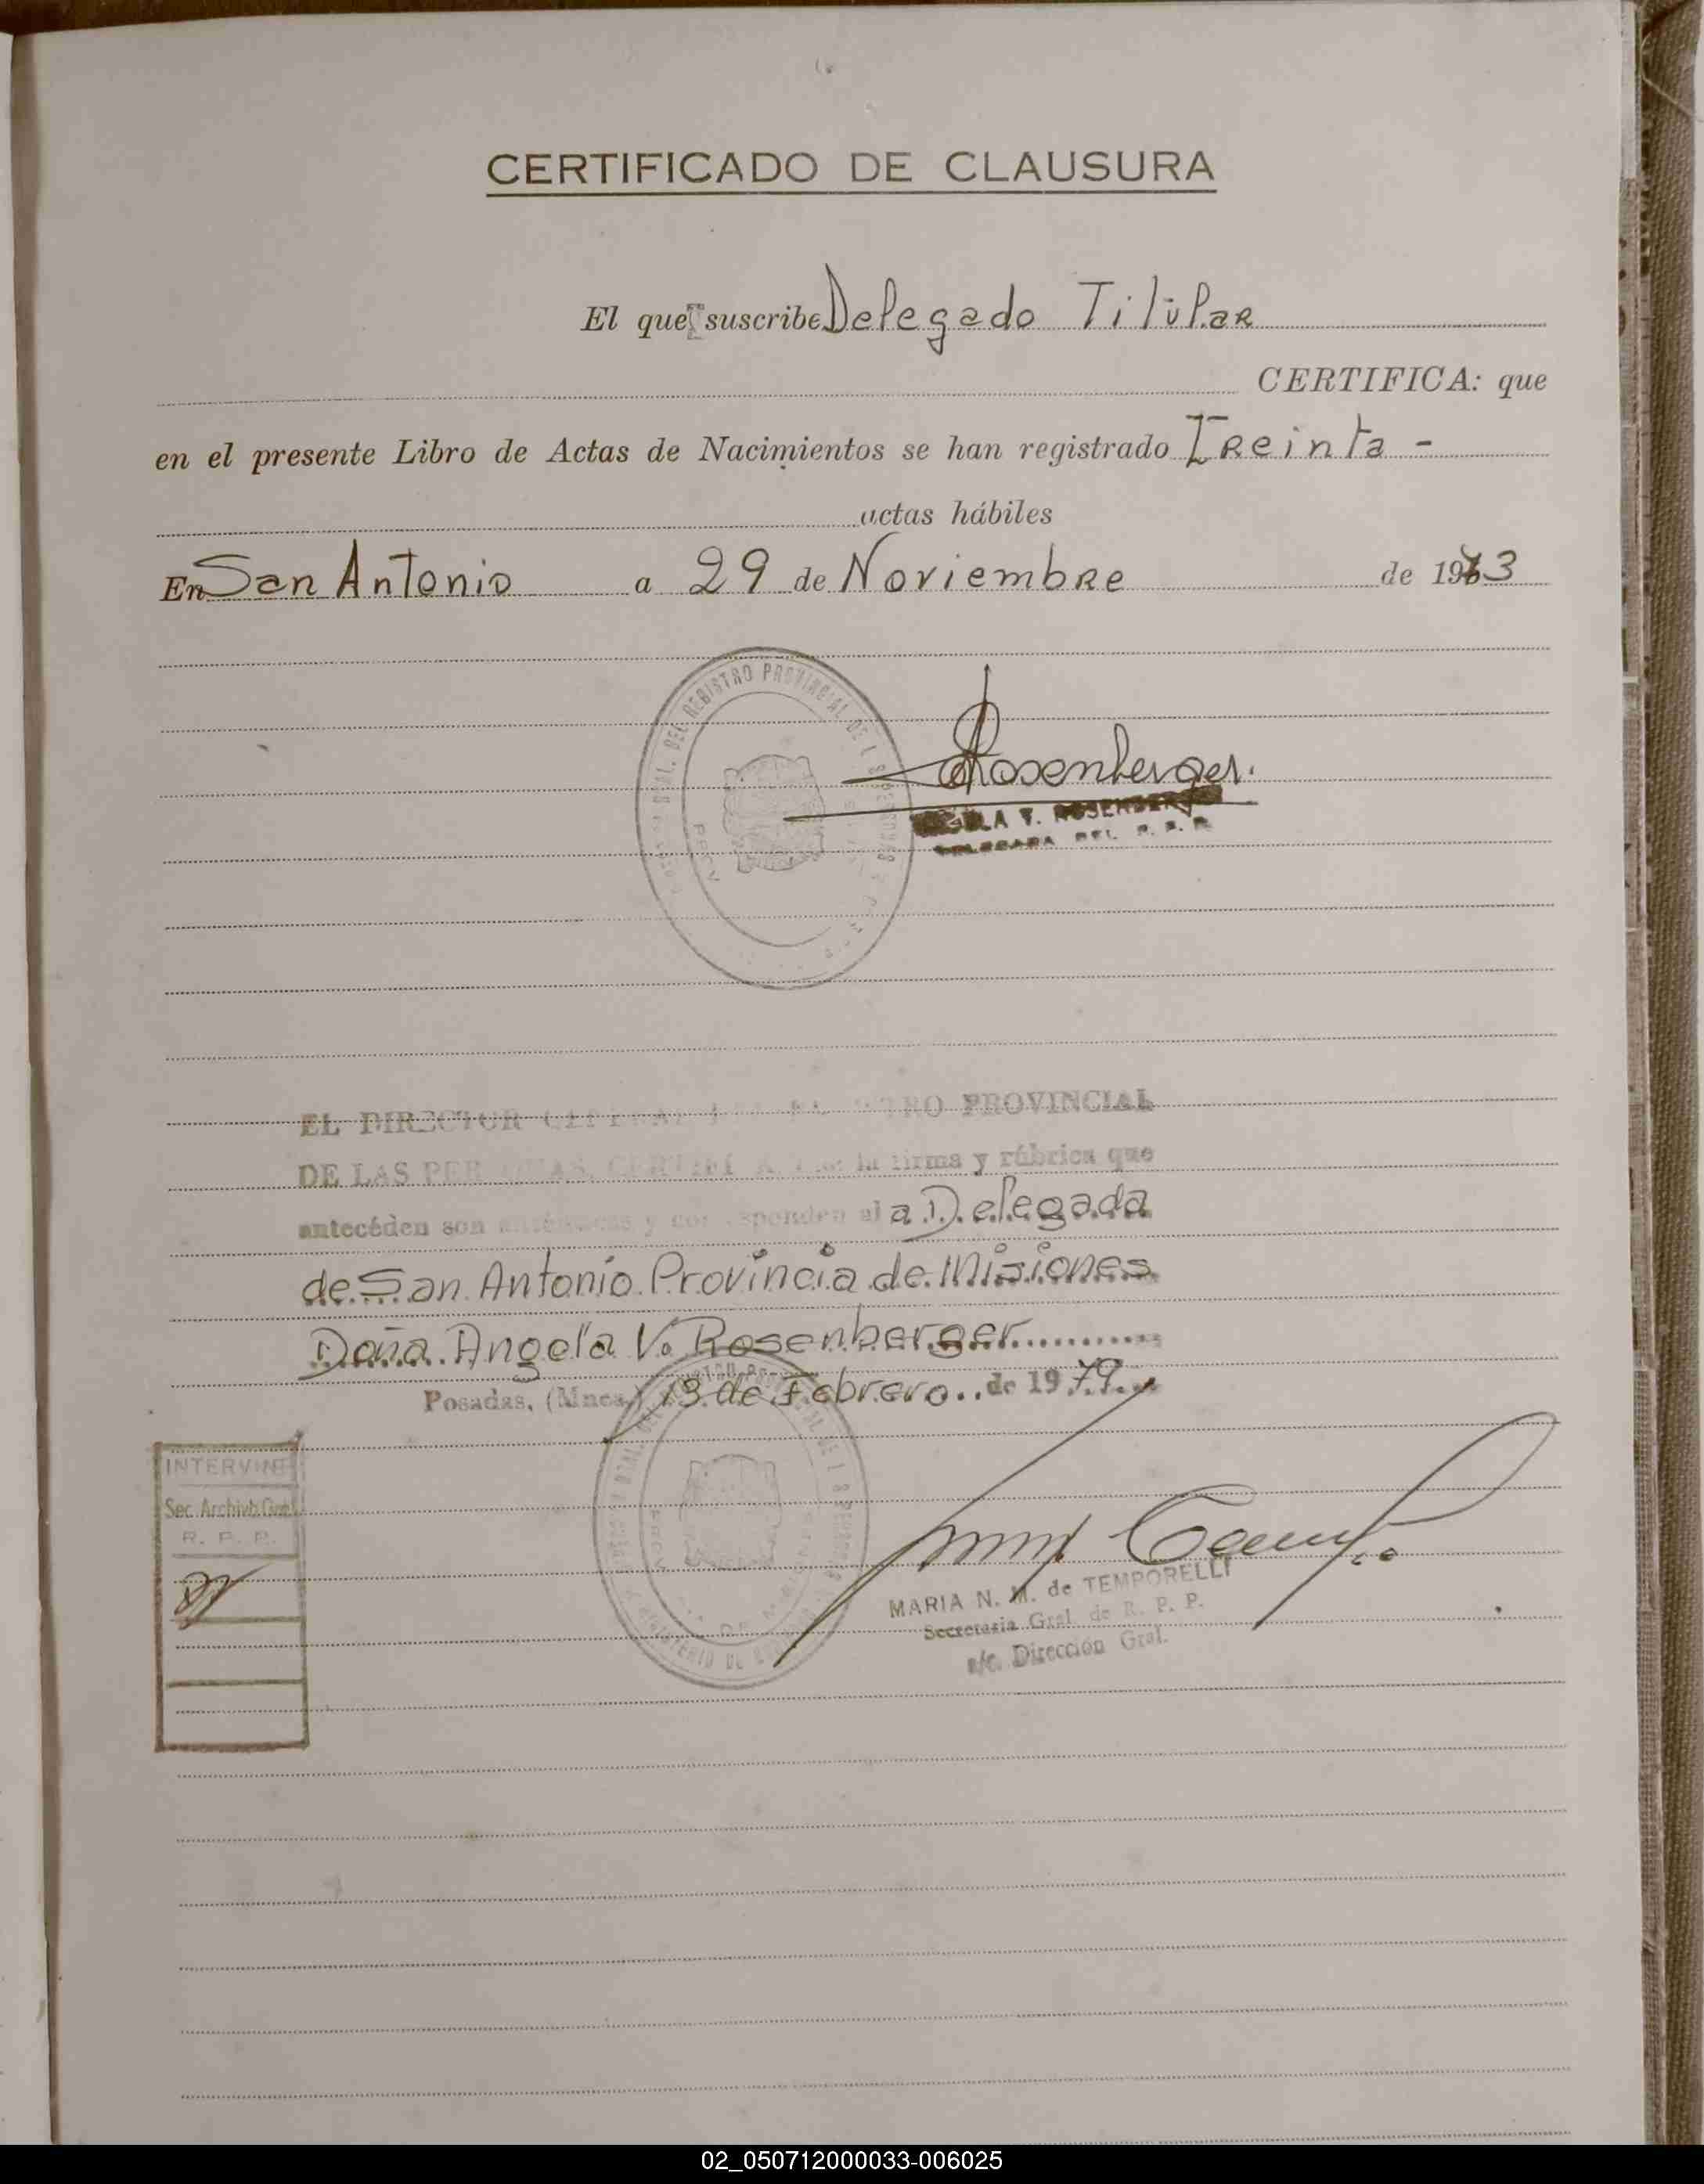 CERTIFICADO DE CLAUSURA
El que suscribe Delegado Titular
CERTIFICA: que
en el presente Libro de Actas de Nacimientos se han registrado Treinta -
actas hábiles
En San Antonio a 29 de Noviembre de 1973
DEL REGISTRO PROVINCIAL DE L
Rosenberger.
V. ROSENBERGER
DELEGADA DEL R. P. P.
EL DIRECTOR PROVINCIAL
DE LAS la firma y rúbrica que
antecéden son y al a Delegada
de San Antonio Provincia de Misiones
Doña Angela V. Rosenberger
Posadas, (Mnes.) 13 de Febrero de 1979
INTERVINE
Sec. Archivo Gral.
R. P. P.
MARIA N. M. de TEMPORELLI
Secretaria Gral. de R. P. P.
a/c. Dirección Gral.
02_050712000033-006025